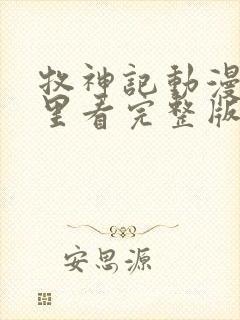 牧神記動漫
里看完整版
安思源